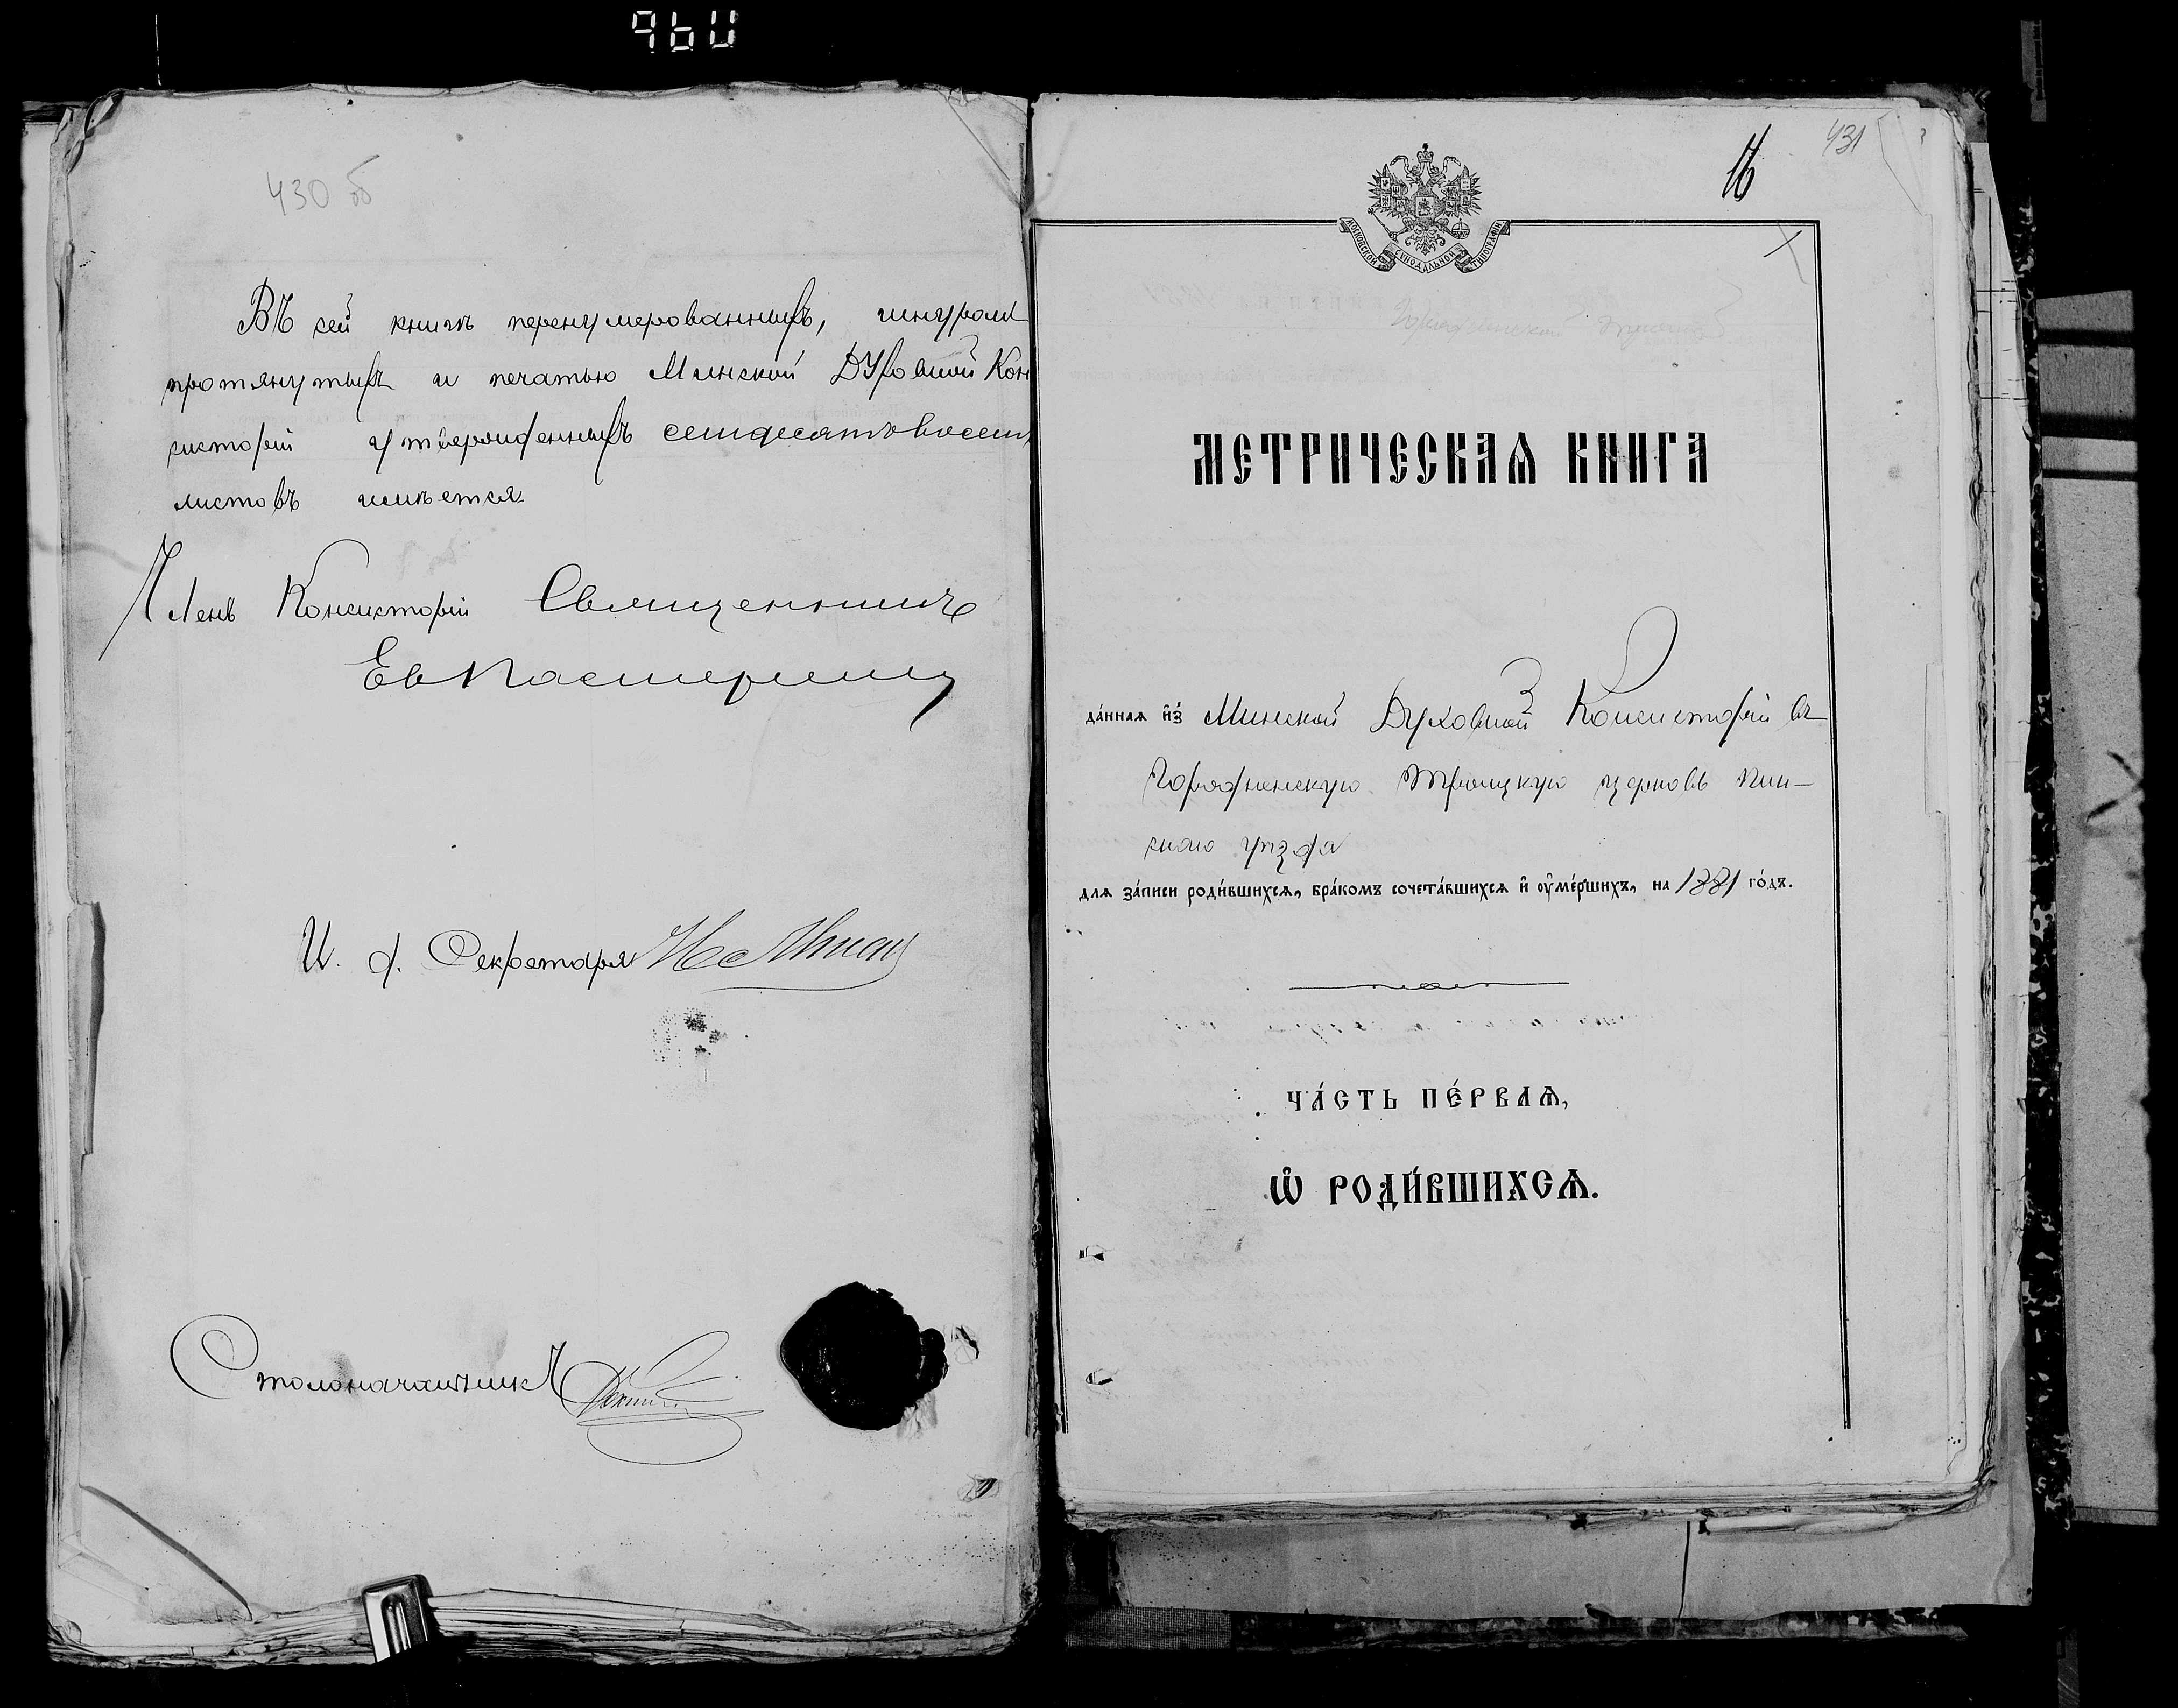 430 об
Въ сей книгѣ перенумерованныхъ, шнуромъ
протянутыхъ и печатью Минской Духовной Кон
систоріи утвержденныхъ семдесятъ восемь
листовъ имѣется.
Членъ Консисторіи Священникъ
И. д. Секретаря
Столоначальникъ
431
16
МОСКОВСКОЙ СѴНОДАЛЬНОЙ ТИПОГРАФІИ
МЕТРИЧЕСКАѦ КНИГА
да́ннаѧ и҆з̾ Минской Духовной Консисторіи въ
Троицкую церковь Пин-
скаго уѣзда
длѧ за́писи роди́вшихсѧ, бра́комъ сочета́вшихсѧ и҆ ᲂу҆ме́ршихъ, на 1881 го́дъ.
ЧА́СТЬ ПЕ́РВАѦ,
Ѽ РОДИ́ВШИХСѦ.